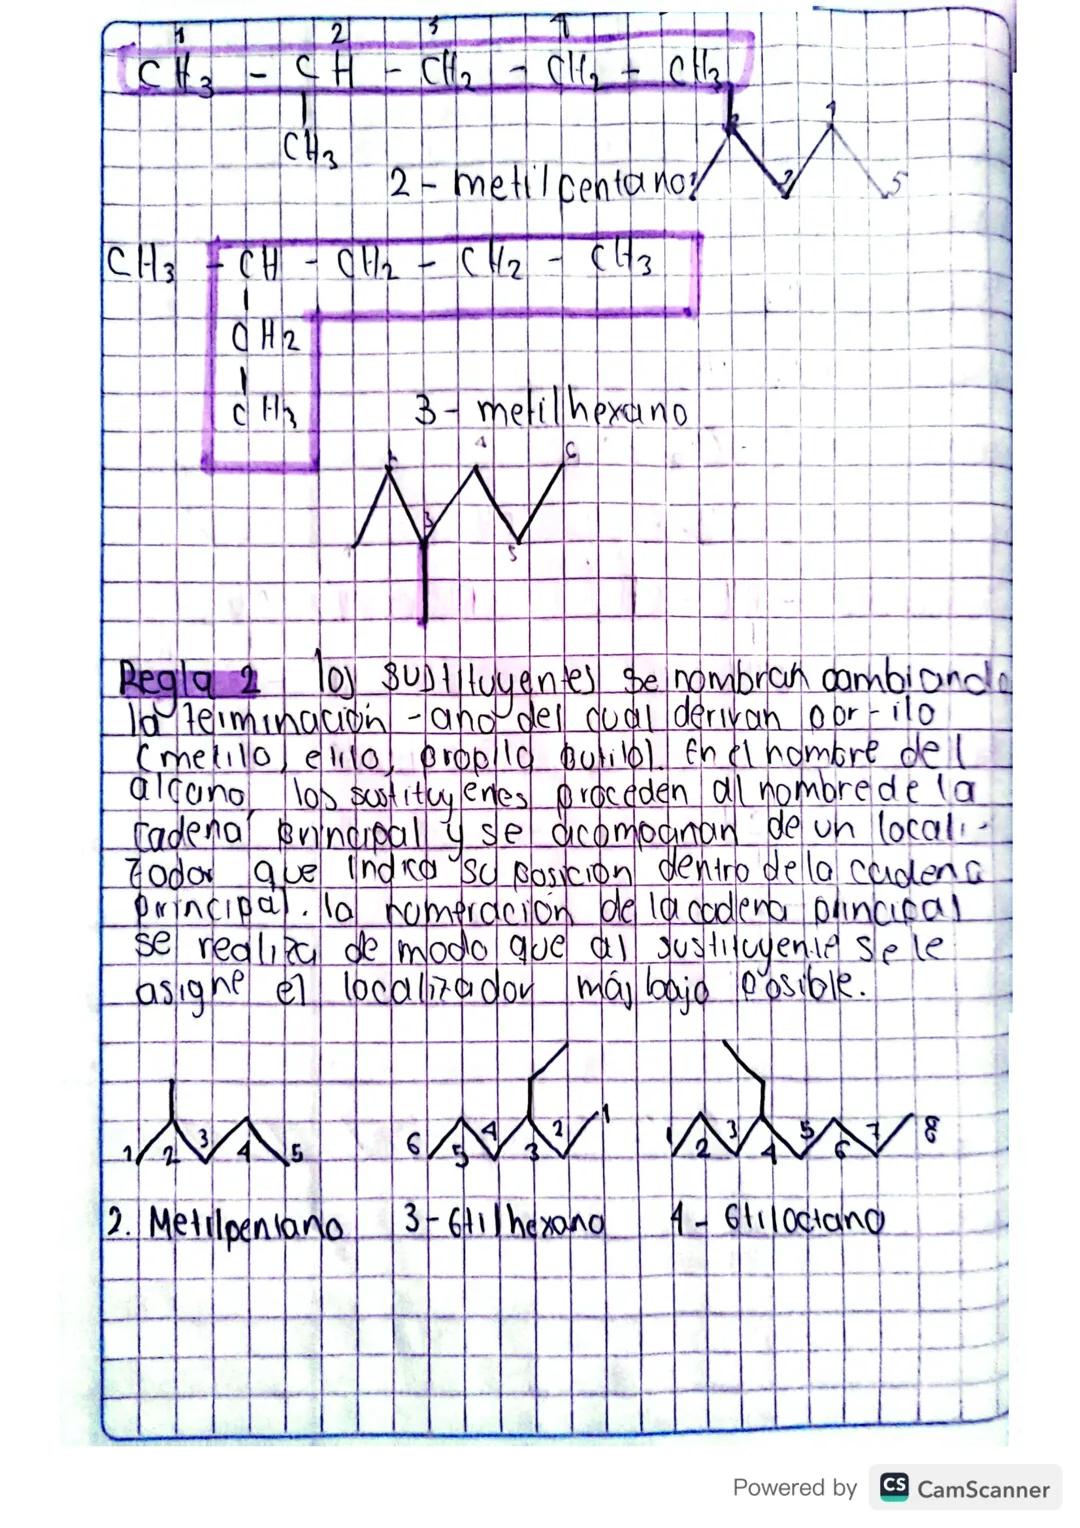 1 2 3 4
CH3 - CH - CH2 - CH2 - CH3
CH3
2 - metilpentano
2 3 4 5
CH3 - CH - CH2 - CH2 - CH3
CH2
CH3
3 - metilhexano
3 4 5 6
Regla 2 los sustituyentes se nombran cambiando
la terminación -ano del cual derivan por -ilo
(metilo, etilo, propilo butilo). En el nombre del
alcano, los sustituyenes proceden al nombre de la
cadena principal y se acompañan de un locali-
zador que indica su posición dentro de la cadena
principal. la numeración de la cadena principal
se realiza de modo que al sustituyente se le
asigne el localizador más bajo posible.
1 2 3 4 5
6 5 4 3 2 1
1 2 3 4 5 6 7 8
2. Metilpentano 3-Etilhexano 4-Etiloctano
Powered by CS CamScanner